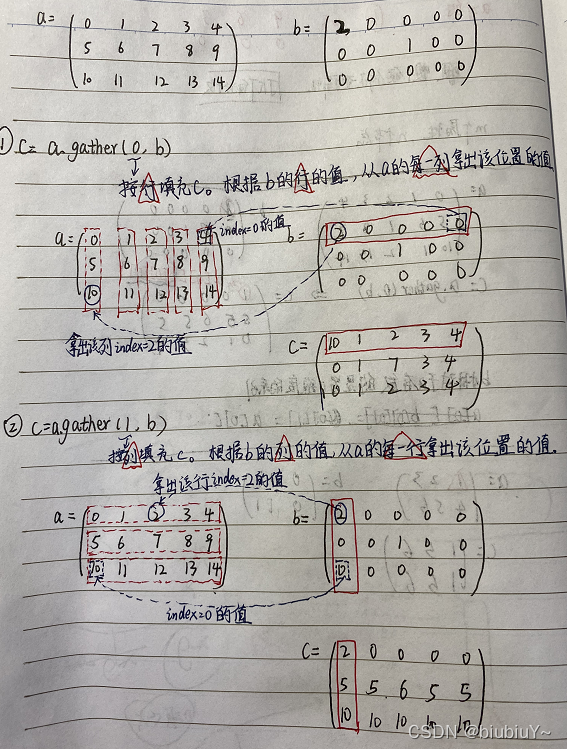 a= ( 0 1 2 3 4 b= ( 2 0 0 0 0
5 6 7 8 9 0 0 1 0 0
10 11 12 13 14 ) 0 0 0 0 0 )
① C= a.gather(0, b)
按行填充C。根据b的行的值，从a的每一列拿出该位置的值
index=0的值
a= ( 0 1 2 3 4 b= ( 2 0 0 0 0
5 6 7 8 9 0 0 1 0 0
10 11 12 13 14 ) 0 0 0 0 0 )
拿出该列index=2的值
C= ( 10 1 2 3 4
0 1 7 3 4
0 1 2 3 4 )
② C=a.gather(1, b)
按列填充C。根据b的列的值，从a的每一行拿出该位置的值.
拿出该行index=2的值
a= ( 0 1 2 3 4 b= ( 2 0 0 0 0
5 6 7 8 9 0 0 1 0 0
10 11 12 13 14 ) 0 0 0 0 0 )
index=0的值
C= ( 2 0 0 0 0
5 5 6 5 5
10 10 10 10 10 )
CSDN @biubiuY~